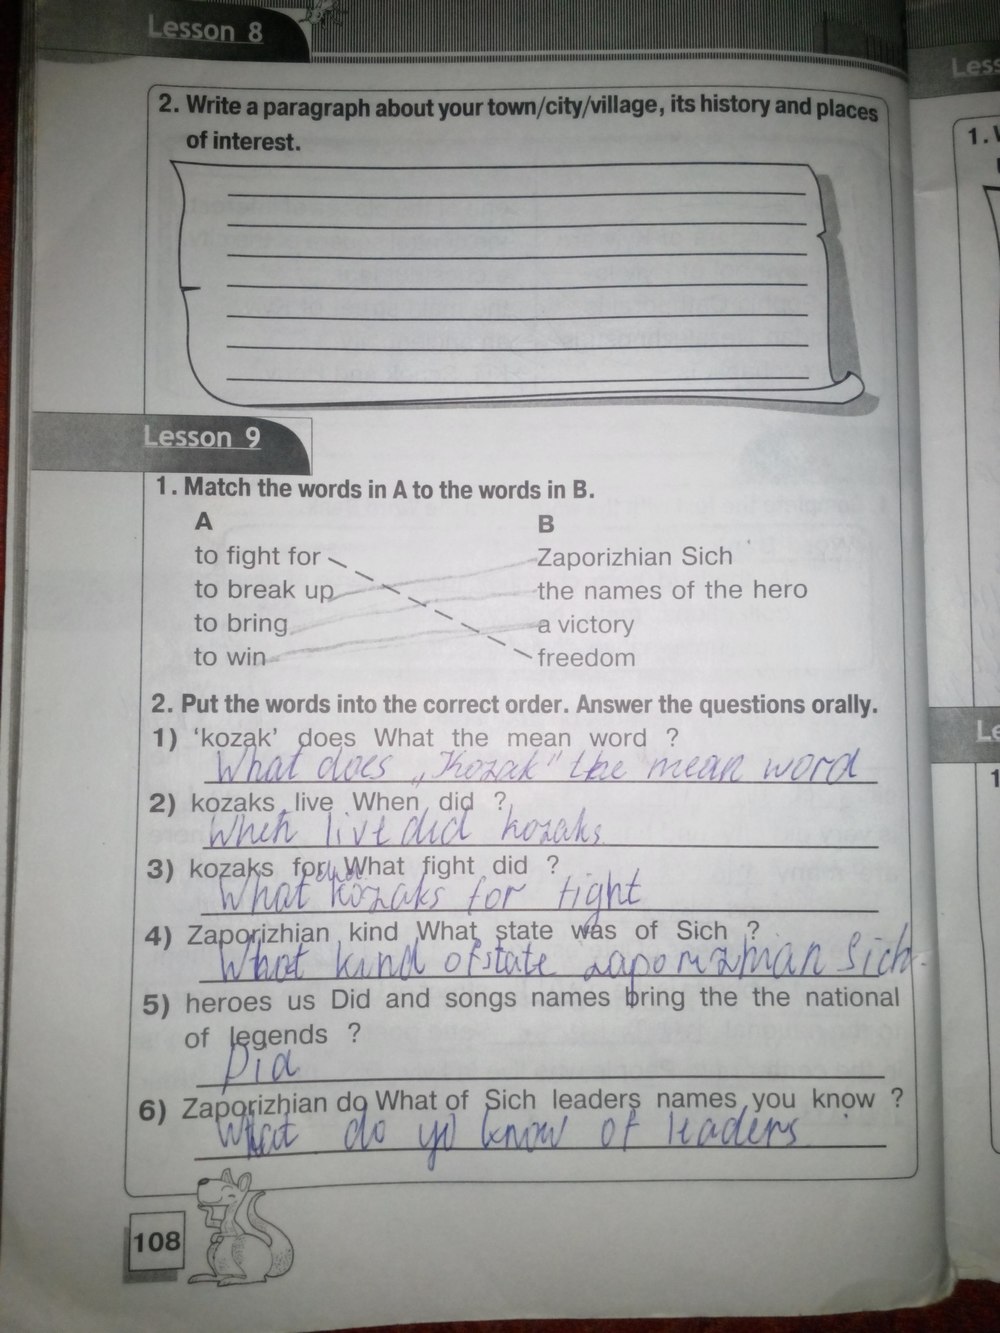 Lesson 8
Less
2. Write a paragraph about your town/city/village, its history and places
of interest.
1.
Lesson 9
1. Match the words in A to the words in B.
A B
to fight for Zaporizhian Sich
to break up the names of the hero
to bring a victory
to win freedom
2. Put the words into the correct order. Answer the questions orally.
1) 'kozak' does What the mean word ?
What does „Kozak" the mean word
2) kozaks live When did ?
When live did kozaks
3) kozaks for What fight did ?
did
What kozaks for fight
4) Zaporizhian kind What state was of Sich ?
What kind of state zaporizhian Sich.
5) heroes us Did and songs names bring the the national
of legends ?
Did
6) Zaporizhian do What of Sich leaders names you know ?
What do yo know of leaders
Le
1
108